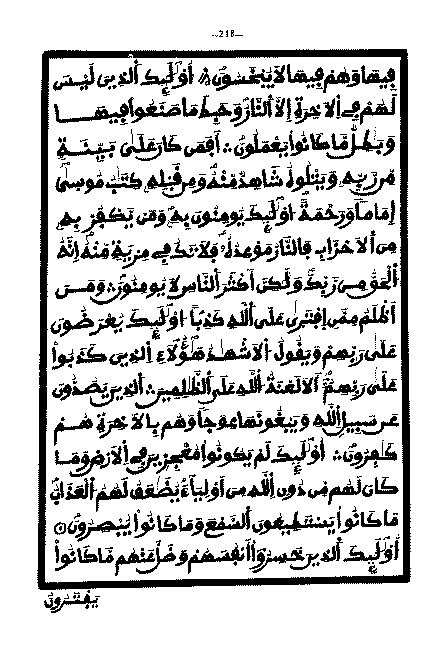 —218—
فيها وهم فيها لا يبخسون أوليك الذين ليس
لهم في الاخرة إلا النار وحبط ما صنعوا فيها
وبطل ما كانوا يعملون أفمن كان على بينة
من ربه ويتلوه شاهد منه ومن قبله كتب موسى
إماما ورحمة أوليك يومنون به ومن يكفر به
من الاحزاب فالنار موعده فلا تك في مرية منه إنه
الحق من ربك ولكن أكثر الناس لا يومنون ومن
أظلم ممن افترى على الله كذبا أوليك يعرضون
على ربهم ويقول الاشهد هؤلاء الذين كذبوا
على ربهم ألا لعنة الله على الظلمين الذين يصدون
عن سبيل الله ويبغونها عوجا وهم بالاخرة هم
كفرون أوليك لم يكونوا معجزين في الارض وما
كان لهم من دون الله من أولياء يضعف لهم العذاب
ما كانوا يستطيعون السمع وما كانوا يبصرون
أوليك الذين خسروا أنفسهم وضل عنهم ما كانوا
يفترون